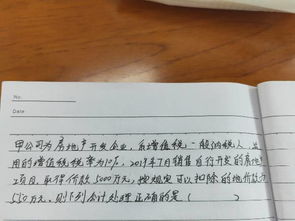 No.
Date
甲公司为房地产开发企业，系增值税一般纳税人，适
用的增值税税率为10%，2019年7月销售自行开发的房地产
项目，取得价款5000万元，按规定可以扣除的地价款为
550万元，则下列会计处理正确的是（ ）